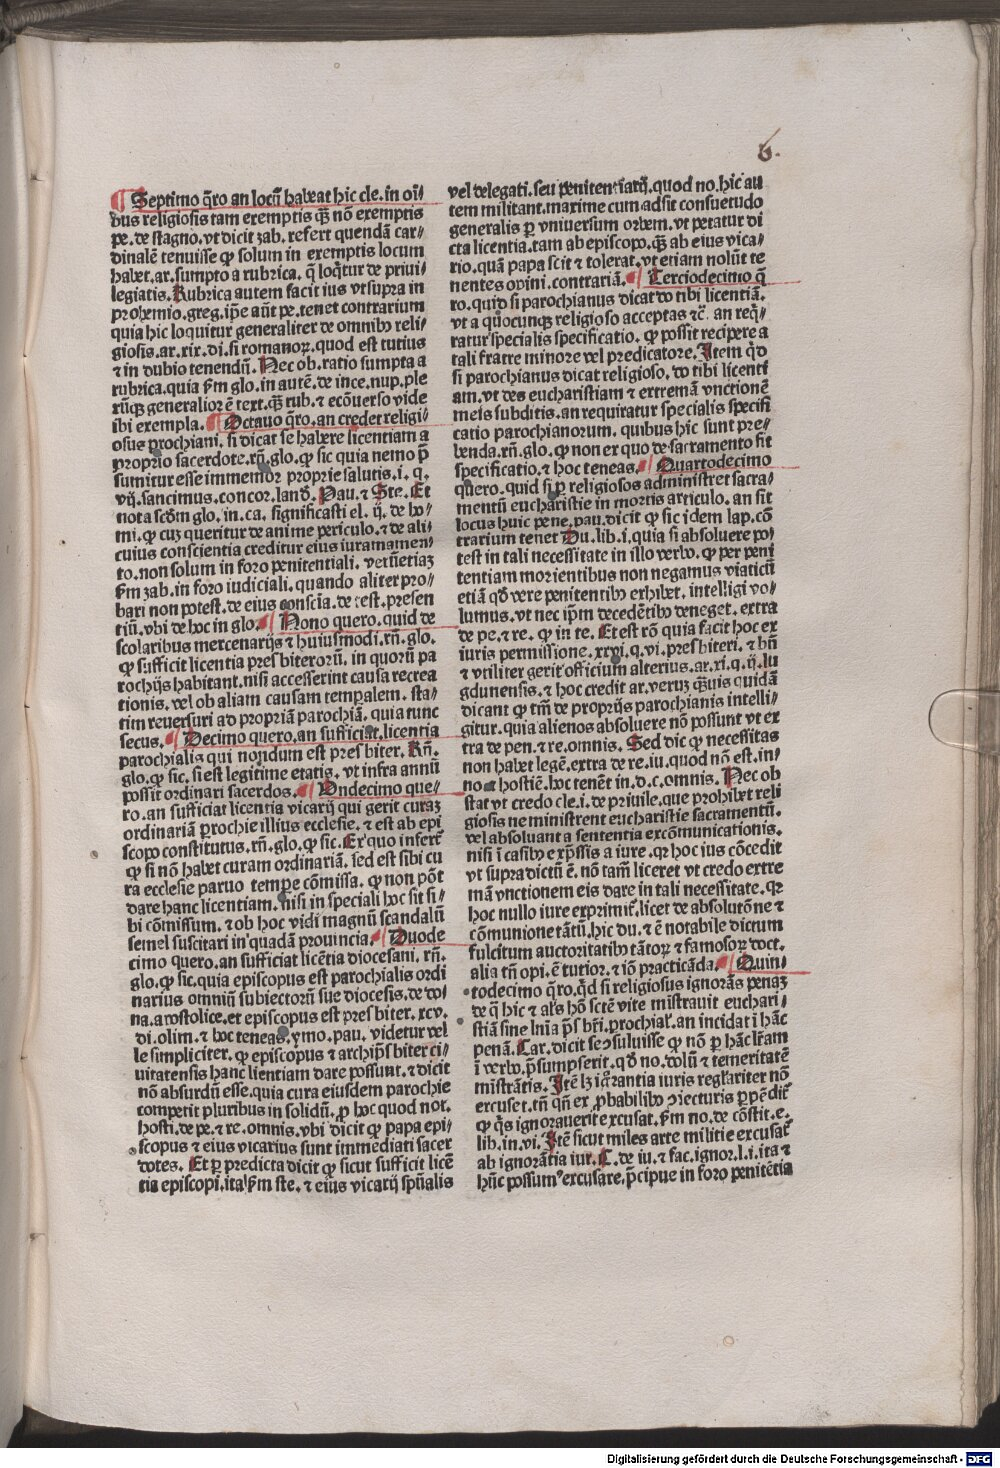 6.
¶ Septimo q̄ro an locū habeat hic cle. in oī⸗
bus religiosis tam exemptis qꝫ̄ nō exemptis
pe. de stagno. vt dicit zab. refert quendā car⸗
dinalē tenuisse ꝙ solum in exemptis locum
habet. ar. sumpto a rubrica. q̄ loq̄tur de priui⸗
legiatis. Rubrica autem facit ius vt supra in
prohemio. greg. ip̄e aūt pe. tenet contrarium
quia hic loquitur generaliter de omnibꝰ reli⸗
giosis. ar. xix. di. si romanoꝝ. quod est tutius
⁊ in dubio tenendū. Nec ob. ratio sumpta a
rubrica. quia ẜm glo. in autē. de ince. nup. ple
rūqꝫ generalior ē text. qꝫ̄ rub. ⁊ ecōuerso vide
ibi exempla. ¶ Octauo q̄ro. an creder religi⸗
osus ꝓchiani. si dicat se habere licentiam a
proprio sacerdote. rn̄. glo. ꝙ sic quia nemo p̄
sumitur esse immemor proprie salutis. i. q.
vij. sancimus. concor. land̄. Pau. ⁊ Ste. Et
nota scd̄m glo. in. ca. significasti el. ij. de ho⸗
mi. ꝙ cuꝫ queritur de anime periculo. ⁊ de ali⸗
cuius conscientia creditur eius iuramamen⸗
to. non solum in foro penitentiali. verūetiaꝫ
ẜm zab. in foro iudiciali. quando aliter pro⸗
bari non potest. de eius conscia. de test. presen
tiū. vbi de hoc in glo. ¶ Nono quero. quid de
scolaribus mercenarijs ⁊ huiusmodi. rn̄. glo.
ꝙ sufficit licentia presbiterorū. in quorū pa
rochijs habitant. nisi accesserint causa recrea
tionis. vel ob aliam causam temꝑalem. sta⸗
tim reuersuri ad propriā parochiā. quia tunc
secus. ¶ Decimo quero. an sufficiat licentia
parochialis qui nondum est presbiter. Rn̄.
glo. ꝙ sic. si est legitime etatis. vt infra annū
possit ordinari sacerdos. ¶ Undecimo que⸗
ro. an sufficiat licentia vicarij qui gerit curaꝫ
ordinariā ꝑrochie illius ecclesie. ⁊ est ab epi
scopo constitutus. rn̄. glo. ꝙ sic. Ex quo infert̄
ꝙ si nō habet curam ordinariā. sed est sibi cu
ra ecclesie paruo temꝑe cōmissa. ꝙ non pōt
dare hanc licentiam. nisi in speciali hoc sit si⸗
bi cōmissum. ⁊ ob hoc vidi magnū scandalū
semel suscitari in quadā prouincia. ¶ Duode
cimo quero. an sufficiat licētia diocesani. rn̄.
glo. ꝙ sic. quia episcopus est parochialis ordi
narius omniū subiectorū sue diocesis. de do⸗
na. apostolice. et episcopus est presbiter. xcv.
di. olim. ⁊ hoc teneas. ymo. pau. videtur vel
le simpliciter. ꝙ episcopus ⁊ archip̄sbiter ci⸗
vitatensis hanc lientiam dare possunt. ⁊ dicit
nō absurdū esse. quia cura eiusdem parochie
competit pluribus in solidū. ꝑ hoc quod not.
hosti. de pe. ⁊ re. omnis. vbi dicit ꝙ papa epi⸗
scopus ⁊ eius vicarius sunt immediati sacer
dotes. Et ꝑ predicta dicit ꝙ sicut sufficit licē
tia episcopi. ita ẜm ste. ⁊ eius vicarij sp̄ualis
vel delegati. seu penitentiarij. quod no. hic au
tem militant. maxime cum adsit consuetudo
generalis ꝑ vniuersum orbem. vt petatur di
cta licentia. tam ab episcopo. qꝫ̄ ab eius vica⸗
rio. quā papa scit ⁊ tolerat. vt etiam nolūt te
nentes opini. contrariā. ¶ Terciodecimo q̄
ro. quid si parochianus dicat do tibi licentiā.
vt a quocunqꝫ religioso acceptas ⁊c̄. an req̄⸗
ratur specialis specificatio. ꝙ possit recipere a
tali fratre minore vel predicatore. Item q̄d
si parochianus dicat religioso. do tibi licenti
am. vt des eucharistiam ⁊ extremā vnctionē
meis subditis. an requiratur specialis specifi
catio parochianorum. quibus hic sunt pre⸗
benda. rn̄. glo. ꝙ non ex quo de sacramento fit
specificatio. ⁊ hoc teneas. ¶ Quartodecimo
quero. quid si ꝑ religiosos administret sacra⸗
mentū eucharistie in mortis articulo. an sit
locus huic pene. pau. dicit ꝙ sic idem lap. cō
trarium tenet Du. lib. i. quia si absoluere po⸗
test in tali necessitate in illo verbo. ꝙ per peni
tentiam morientibus non negamus viaticū
etiā qd̄ vere penitentibꝰ exhibet. intelligi vo⸗
lumus. vt nec ip̄m decedētibꝰ deneget. extra
de pe. ⁊ re. ꝙ in te. Et est rō quia facit hoc ex
iuris permissione. xxvi. q. vi. presbiteri. ⁊ bn̄
⁊ vtiliter gerit officium alterius. ar. xi. q. ij. lu
gdunensis. ⁊ hoc credit ar. veruꝫ qꝫ̄uis quidā
dicant ꝙ tm̄ de proprijs parochianis intelli⸗
gitur. quia alienos absoluere nō possunt vt ex
tra de pen. ⁊ re. omnis. Sed dic ꝙ necessitas
non habet legē. extra de re. iu. quod nō est. in⸗
no. ⁊ hostiē. hoc tenēt in. d. c. omnis. Nec ob
stat vt credo cle. i. de priuile. que prohibet reli
giosis ne ministrent eucharistie sacramentū.
vel absoluant a sententia excōmunicationis.
nisi ī casibꝰ exp̄ssis a iure. qꝛ hoc ius cōcedit
vt supra dictū ē. nō tam̄ liceret vt credo extre
mā vnctionem eis dare in tali necessitate. qꝛ
hoc nullo iure exprimit̄. licet de absolutōne ⁊
cōmunione tātū. hic du. ⁊ ē notabile dictum
fulcitum auctoritatibꝰ tātoꝝ ⁊ famosoꝝ doct.
alia tn̄ opi. ē tutior. ⁊ iō practicāda. ¶ Quin⸗
todecimo q̄ro. qd̄ si religiosus ignorās penaꝫ
de q̄ hic ⁊ al̄s hō sctē vite mīstrauit euchari⸗
stiā sine lnīa p̄s bri̅. ꝓchial̄. an incidat ī hāc
penā. Car. dicit se ↄsuluisse ꝙ nō ꝑ hāc lr̄am
ī verbo. p̄sumpserit. qd̄ no. dolū ⁊ temeritatē
mīstrātis. Itē lꝫ ignorantia iuris reglariter nō
excuset. tn̄ qn̄ ex ꝓbabilibꝰ ↄiecturis ꝑpēdit̄
ꝙ q̄s ignorauerit excusat. ẜm no. de cōstit. e.
lib. in. vi. Itē sicut miles arte militie excusat̄
ab ignorātia iur. C. de iu. ⁊ fac. ignor. l. i. ita ⁊
hūc possumꝰ excusare. p̄cipue in foro penitētia
Digitalisierung gefördert durch die Deutsche Forschungsgemeinschaft - DFG